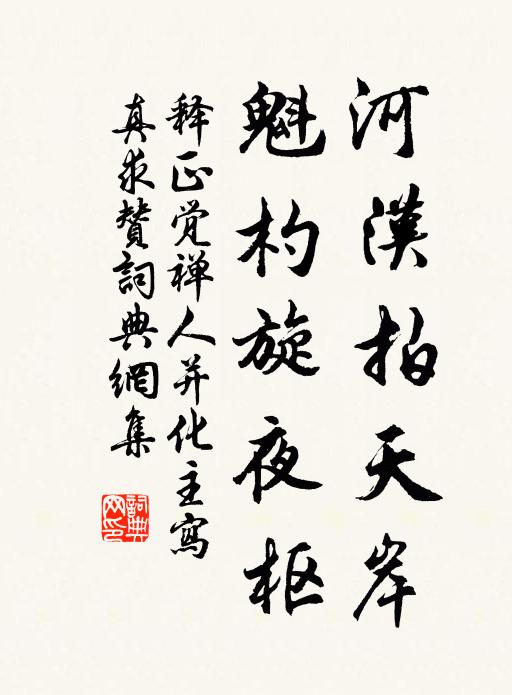 河漢拍天岸
魁杓旋夜枢
释正觉禅人并化主寫
真求賛詞典網集
詞典
网印